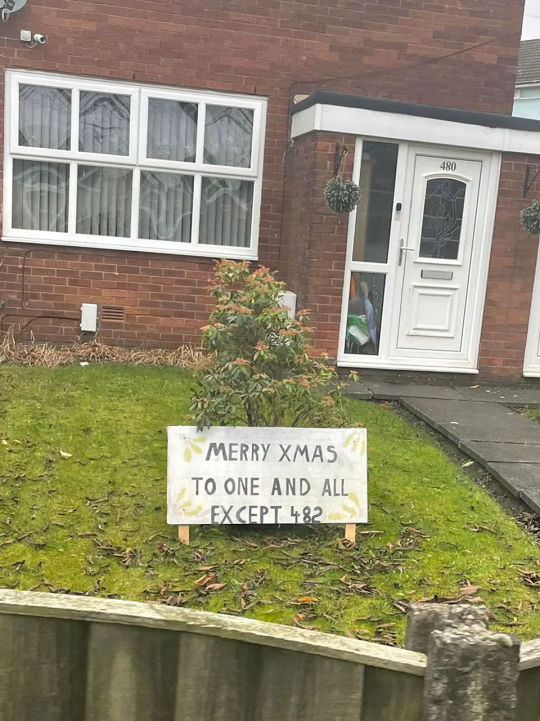 480
MERRY XMAS
TO ONE AND ALL
EXCEPT 482